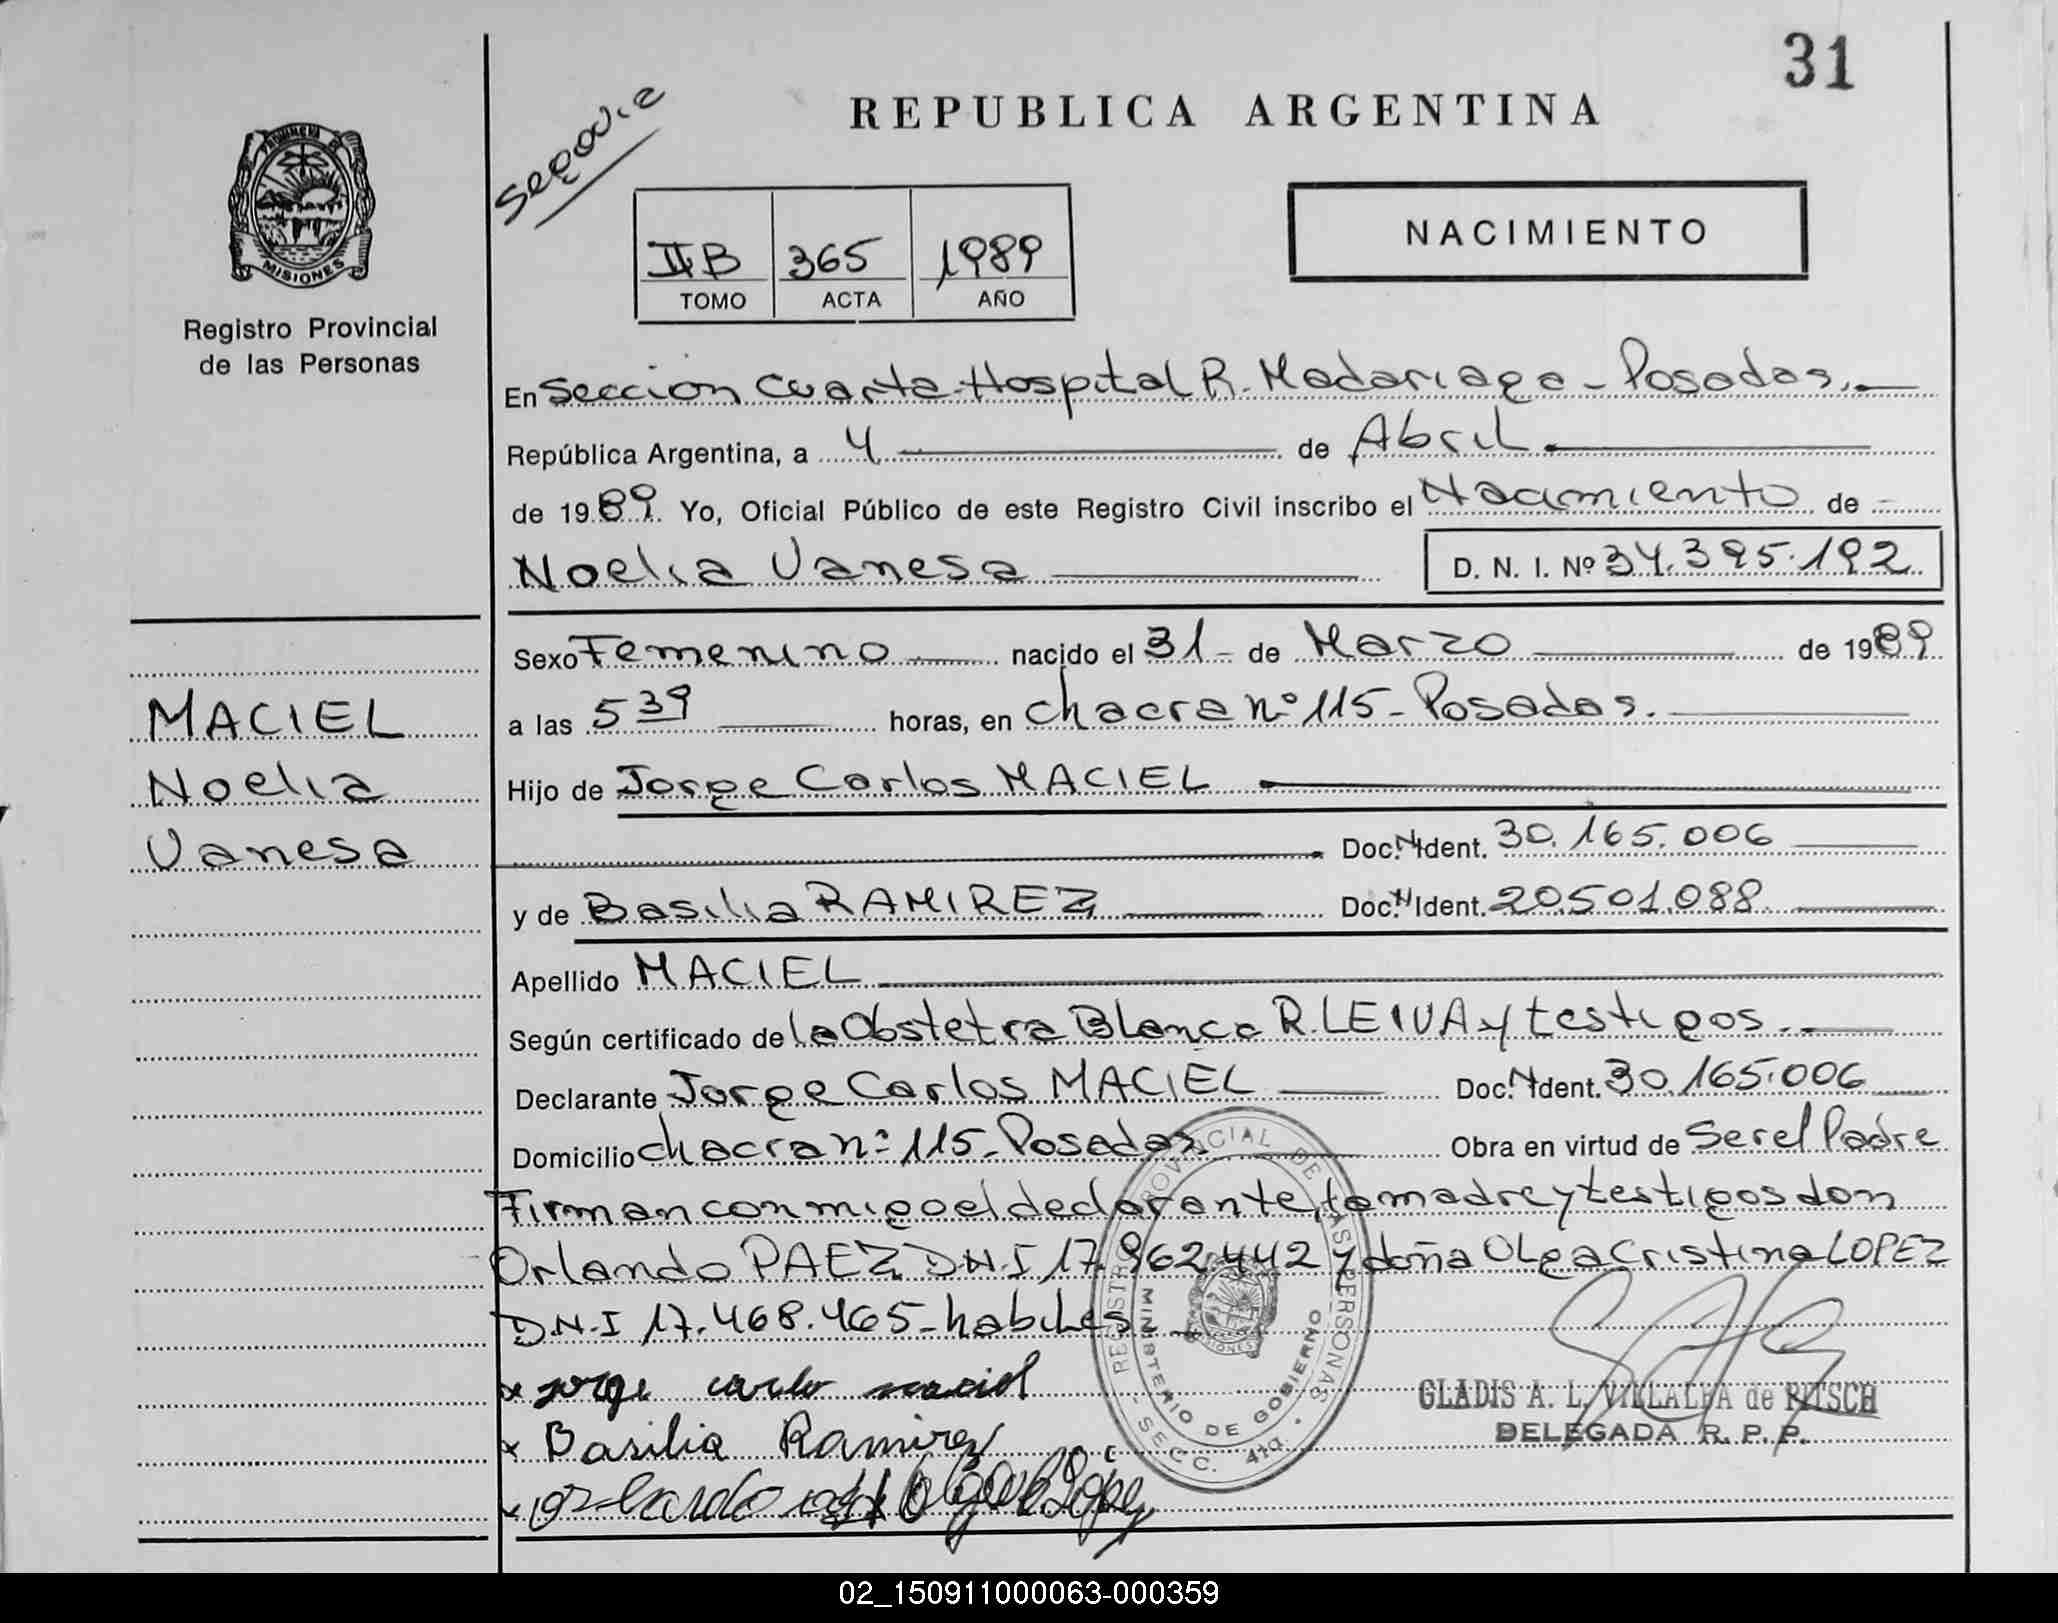 31
Segovia
REPUBLICA ARGENTINA
PROVINCIA DE
MISIONES
Registro Provincial
de las Personas
II B 365 1989
TOMO ACTA AÑO
NACIMIENTO
En Seccion Cuarta-Hospital R. Madariaga - Posadas.
República Argentina, a 4 de Abril
de 1989. Yo, Oficial Público de este Registro Civil inscribo el Nacimiento de
Noelia Vanesa D. N. I. Nº 34.395.192
Sexo Femenino nacido el 31 de Marzo de 1989
a las 5 39 horas, en chacra nº 115 - Posadas.
Hijo de Jorge Carlos MACIEL
Doc. N Ident. 30.165.006
y de Basilia RAMIREZ Doc. N Ident. 20.501.088
Apellido MACIEL
Según certificado de la Obstetra Blanca R. LEIVA y testigos.
Declarante Jorge Carlos MACIEL Doc. N Ident. 30.165.006
Domicilio chacra nº 115 - Posadas Obra en virtud de Ser el Padre
Firman conmigo el declarante, la madre y testigos don
Orlando PAEZ D.N.I 17.962.442 y doña Olga Cristina LOPEZ
D.N.I 17.468.465 - habiles
x jorge carlo maciel
x Basilia Ramirez
x
MACIEL
Noelia
Vanesa
REGISTRO PROVINCIAL DE LAS PERSONAS
MINISTERIO DE GOBIERNO
- SECC. 4ta. -
GLADIS A. L. VILLALBA de RITSCH
DELEGADA R. P. P.
02_150911000063-000359